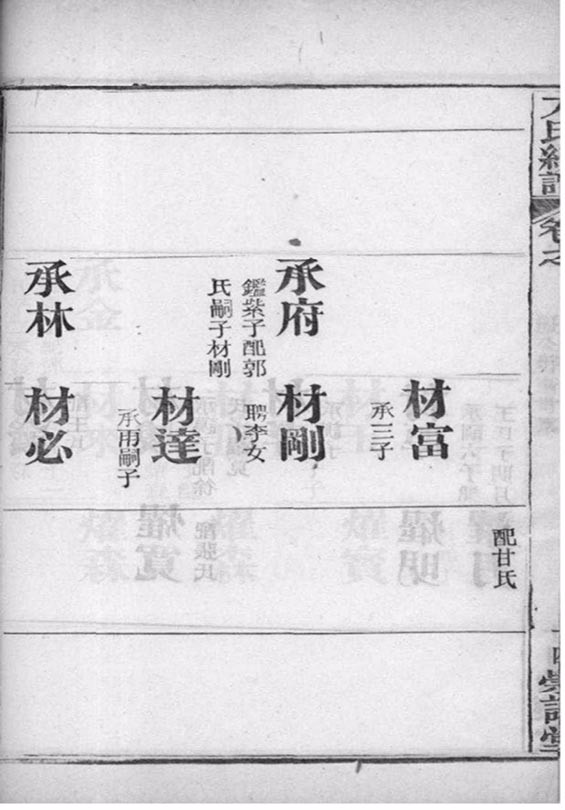 氏
卷之
配甘氏
材富
承三子
承府
鑑紫子配郭
氏嗣子材剛
材剛
聘李女
材達
承甫嗣子
承林
材必